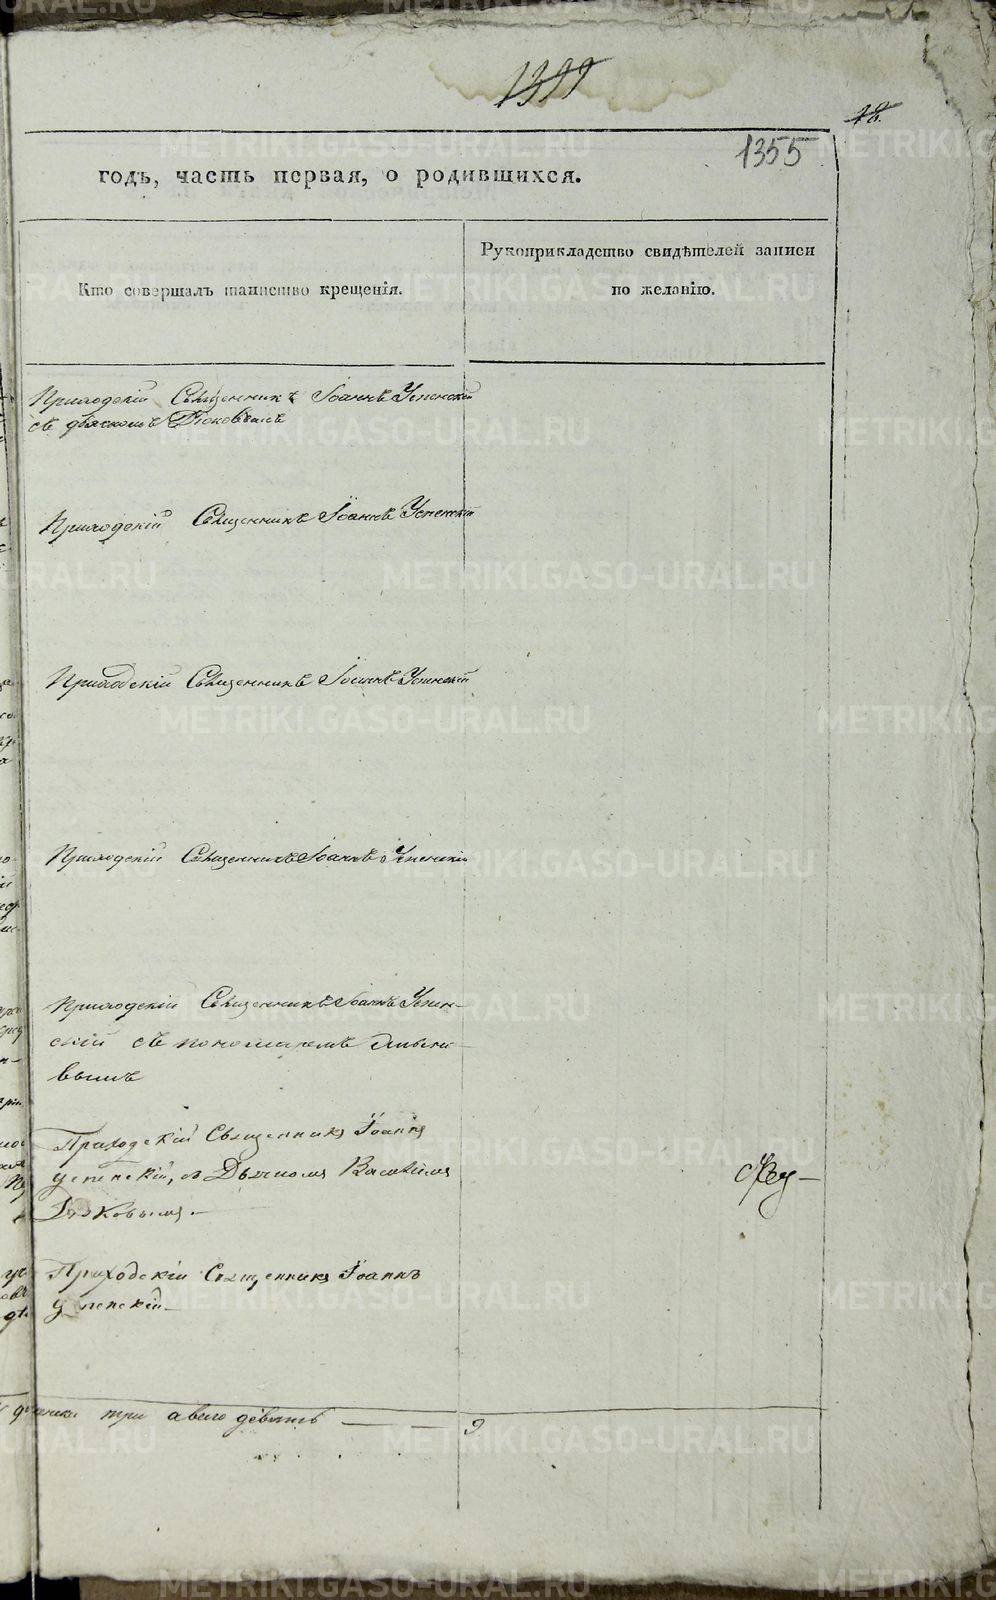 1399
18.
1355
годъ, часть первая, о родившихся.
Кто совершалъ таинство крещенія.
Рукоприкладство свидѣтелей записи
по желанію.
Приходскій Священникъ Іоаннъ Успенскій
съ дьячкомъ
Приходскій Священникъ Іоаннъ Успенскій
Приходскій Священникъ Іоаннъ Успенскій
Приходскій Священникъ Іоаннъ Успенскій
Приходскій Священникъ Іоаннъ Успен-
скій съ пономаремъ
вымъ
Приходскій Священникъ Іоаннъ
Успенскій, съ Дьячкомъ
Приходскій Священникъ Іоаннъ
Успенскій
три а всего девять — 9
METRIKI.GASO-URAL.RU